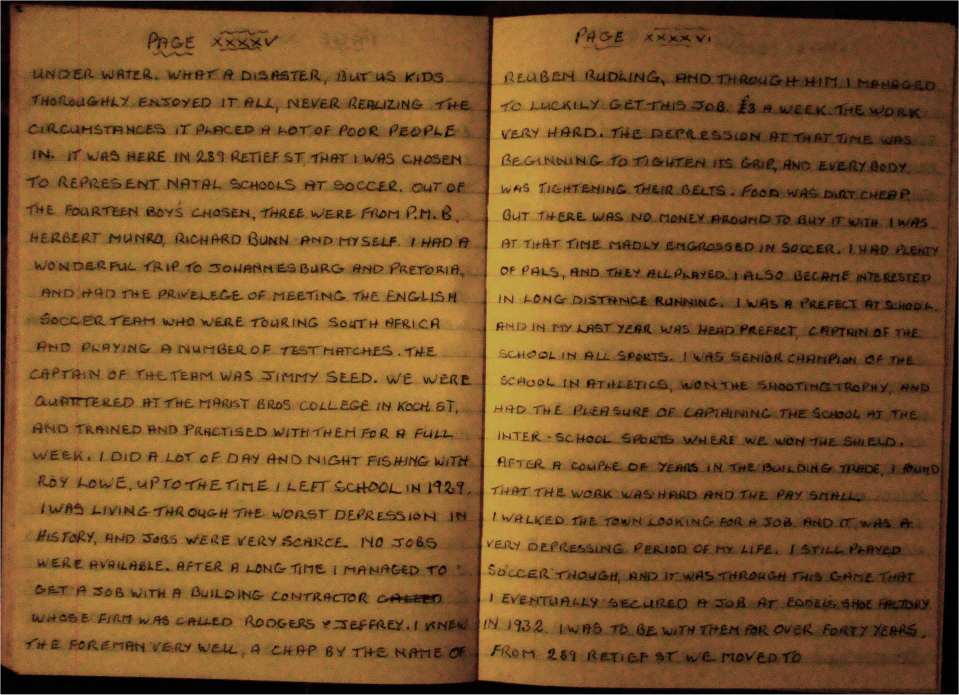 PAGE XXXXV
UNDER WATER. WHAT A DISASTER, BUT US KIDS
THOROUGHLY ENJOYED IT ALL, NEVER REALIZING THE
CIRCUMSTANCES IT PLACED A LOT OF POOR PEOPLE
IN. IT WAS HERE IN 289 RETIEF ST, THAT I WAS CHOSEN
TO REPRESENT NATAL SCHOOLS AT SOCCER. OUT OF
THE FOURTEEN BOYS CHOSEN, THREE WERE FROM P.M.B,
HERBERT MUNRO, RICHARD BUNN AND MYSELF. I HAD A
WONDERFUL TRIP TO JOHANNESBURG AND PRETORIA,
AND HAD THE PRIVELEGE OF MEETING THE ENGLISH
SOCCER TEAM WHO WERE TOURING SOUTH AFRICA
AND PLAYING A NUMBER OF TEST MATCHES. THE
CAPTAIN OF THE TEAM WAS JIMMY SEED. WE WERE
QUATTERED AT THE MARIST BROS COLLEGE IN KOCH ST,
AND TRAINED AND PRACTISED WITH THEM FOR A FULL
WEEK. I DID A LOT OF DAY AND NIGHT FISHING WITH
ROY LOWE, UP TO THE TIME I LEFT SCHOOL IN 1929.
I WAS LIVING THROUGH THE WORST DEPRESSION IN
HISTORY, AND JOBS WERE VERY SCARCE. NO JOBS
WERE AVAILABLE. AFTER A LONG TIME I MANAGED TO
GET A JOB WITH A BUILDING CONTRACTOR CALLED
WHOSE FIRM WAS CALLED RODGERS & JEFFREY. I KNEW
THE FOREMAN VERY WELL, A CHAP BY THE NAME OF
PAGE XXXXVI
REUBEN RUDLING, AND THROUGH HIM I MANAGED
TO LUCKILY GET THIS JOB. £3 A WEEK. THE WORK
VERY HARD. THE DEPRESSION AT THAT TIME WAS
BEGINNING TO TIGHTEN ITS GRIP, AND EVERYBODY
WAS TIGHTENING THEIR BELTS. FOOD WAS DIRT CHEAP
BUT THERE WAS NO MONEY AROUND TO BUY IT WITH. I WAS
AT THAT TIME MADLY ENGROSSED IN SOCCER. I HAD PLENTY
OF PALS, AND THEY ALL PLAYED. I ALSO BECAME INTERESTED
IN LONG DISTANCE RUNNING. I WAS A PREFECT AT SCHOOL
AND IN MY LAST YEAR WAS HEAD PREFECT, CAPTAIN OF THE
SCHOOL IN ALL SPORTS. I WAS SENIOR CHAMPION OF THE
SCHOOL IN ATHLETICS, WON THE SHOOTING TROPHY, AND
HAD THE PLEASURE OF CAPTAINING THE SCHOOL AT THE
INTER-SCHOOL SPORTS WHERE WE WON THE SHIELD.
AFTER A COUPLE OF YEARS IN THE BUILDING TRADE, I FOUND
THAT THE WORK WAS HARD AND THE PAY SMALL.
I WALKED THE TOWN LOOKING FOR A JOB. AND IT WAS A
VERY DEPRESSING PERIOD OF MY LIFE. I STILL PLAYED
SOCCER THOUGH, AND IT WAS THROUGH THIS GAME THAT
I EVENTUALLY SECURED A JOB AT EDDELS SHOE FACTORY
IN 1932. I WAS TO BE WITH THEM FOR OVER FORTY YEARS.
FROM 289 RETIEF ST WE MOVED TO